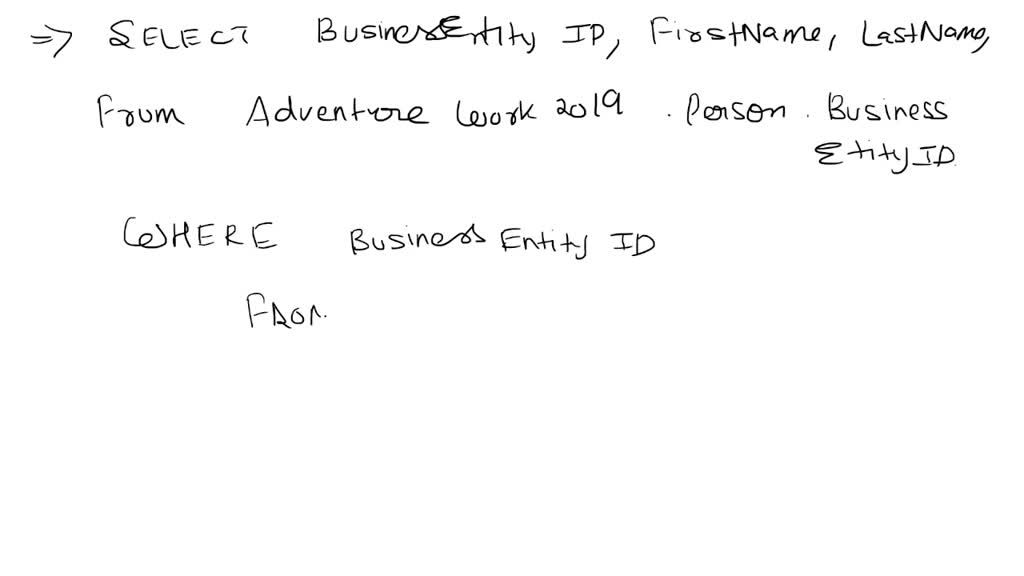 ⇒ SELECT BusinessEntity ID, FirstName, LastName,
From Adventure Work 2019 . Person . Business
EtityID
WHERE Business Entity ID
From